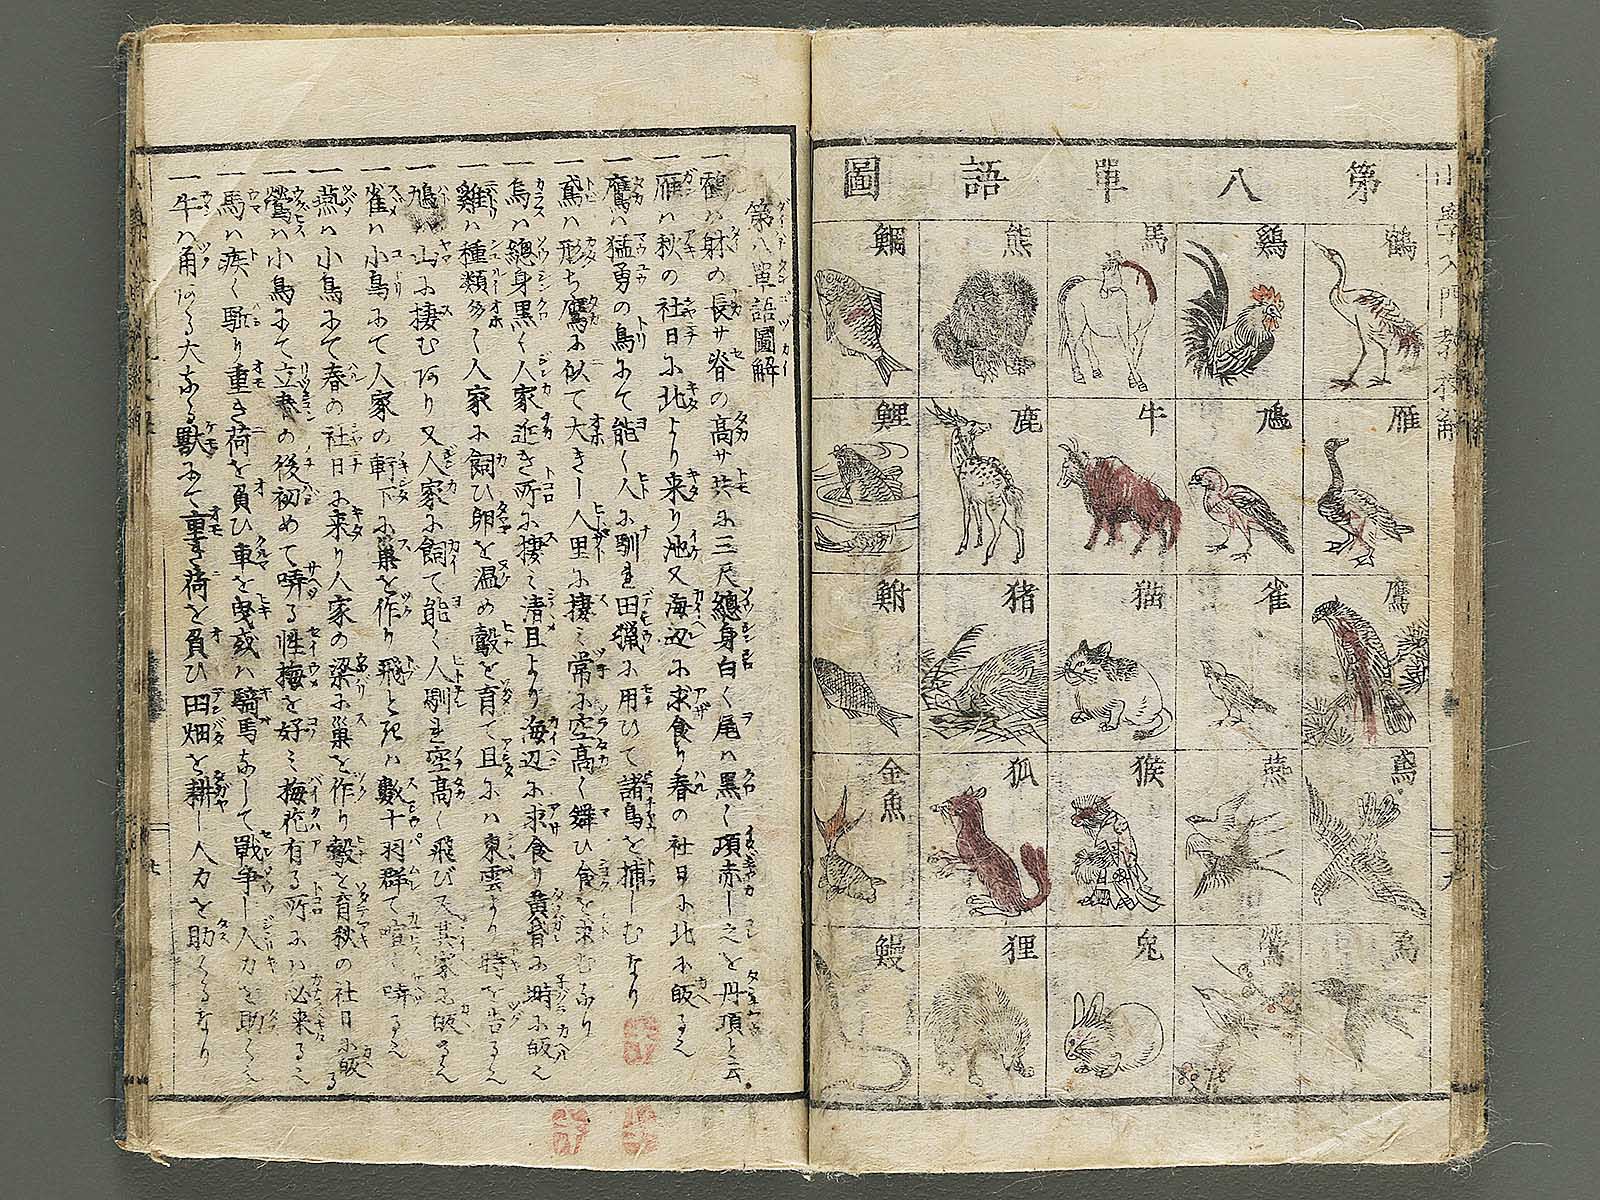 第八單語圖
鶴
雁
鷹
鳶
烏
鷄
鳩
雀
燕
鶯
馬
牛
猫
猴
兎
熊
鹿
猪
狐
狸
鯛
鯉
鮒
金魚
鰻
第八單語圖解
一鶴ハ財の長サ脊の高サ共に三尺總身白く尾ハ黒く項赤し之を丹頂と云
一雁ハ秋の社日に北より来り池又海辺に求食り春の社日に北に皈るゝ
一鷹ハ猛勇の鳥にて能く人に馴れ田猟に用ひて諸鳥を捕しむなり
一鳶ハ形ち鷹に似て大きし人里に棲ミ常に空高く舞ひ食を求むなり
一烏ハ總身黒く人家近き所に棲ミ清旦より海辺に求食り黄昏に塒に皈る
一雞ハ種類多く人家に飼ひ卵を温め鷇を育て且にハ東雲より時を告る
一鳩ハ山に棲むあり又人家に飼て能く人馴れ空高く飛び又其家に皈る
一雀ハ小鳥にて人家の軒下に巣を作り飛と死ハ數十羽群て喧く啼る
一燕ハ小鳥にて春の社日に来り人家の梁に巣を作り鷇を育秋の社日に皈る
一鶯ハ小鳥にて立春の後初めて啼る性梅を好ミ梅花有る所にハ必来る
一馬ハ疾く駈り重き荷を負ひ車を曳或ハ騎馬なして戰争し人力を助く
一牛ハ角ある大なる獸にて重き荷を負ひ田畑を耕し人力を助くるなり